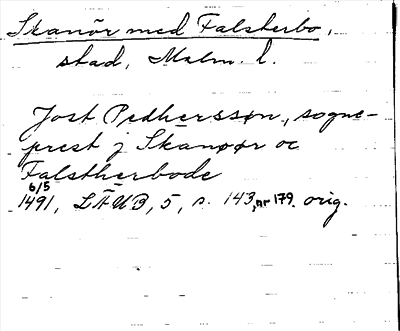 Skanör med Falsterbo,
stad, Malm. l.
Jost Pedhersson, sogne-
prest j Skanøør oc
Falstherbode
6/5
1491, LÄUB, 5, s. 143, nr 179. orig.